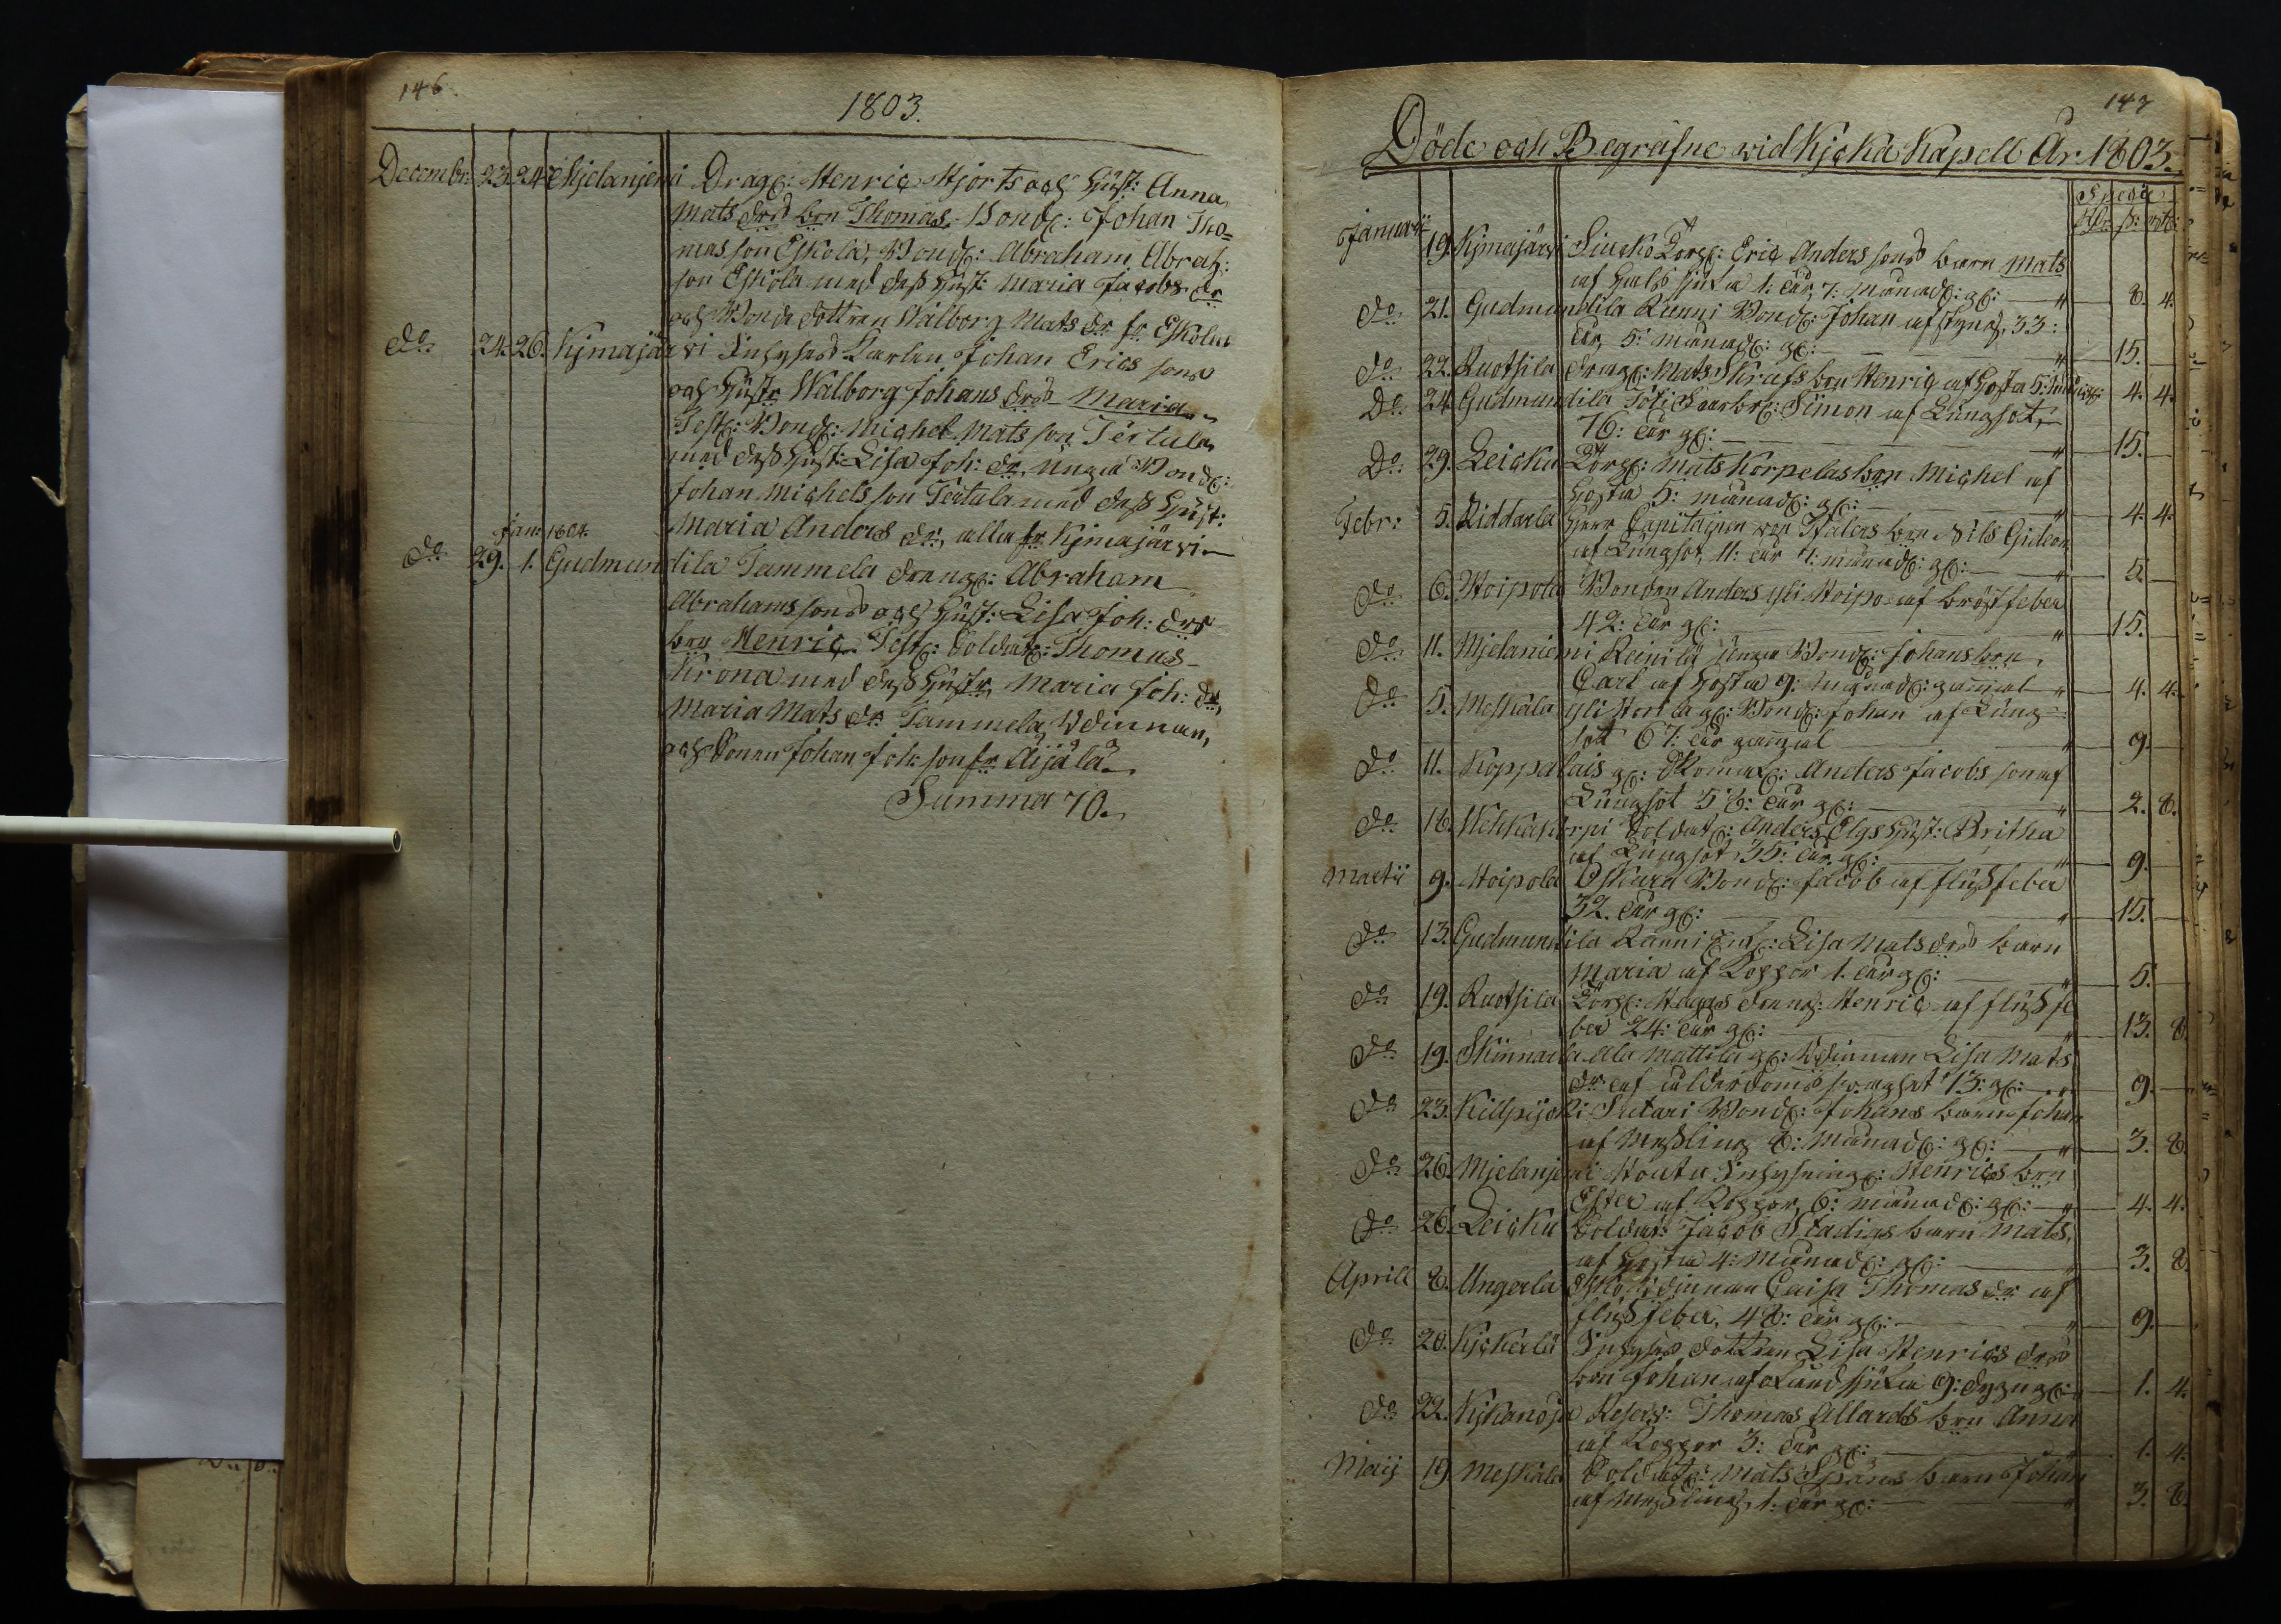 146.
1803.
Decembr: 23. 24. Mjelanjemi Drag: Henric Hjorts och Hust: Anna
Mats drs brn Thomas. Bond: Johan Tho=
mas son Eskola, Bond: Abraham Abrah:
son Eskola med dess Hust: Maria Jacobs dr
och Bonde dottren Walborg Mats dr fr Eskola
do 24. 26. Kjmajärvi Inhyses Karlen Johan Erics sons
och Hustr Walborg Johans drs Maria.
Test: Bond: Michel Matsson Tertula
med dess Hust: Lisa Joh: dr, unga Bond:
Johan Michelsson Tertula med dess Hust:
Maria Anders dr, alla fr Kjmajärvi.
Jan: 1804.
do 29. 1. Gudmundila Tammela dreng: Abraham
Abrahamssons och Hust: Lisa Joh: drs
brn Henric. Test: Soldat: Thomas
Krona med dess Hustr Maria Joh: dr,
Maria Mats dr Tammela, Wdinnan,
och Sonen Johan Joh: son fr Äijälä.
Summa 70.
147
Döde och Begrafne wid Kjcka Kapell År 1803.
Specie
Rdr. ß: rst:
Januarii 19. Kjmajärvi Siucko Torp: Eric Anderssons barn Mats
af Halssjuka 1: år, 7: månad: gl: " 8. 4.
do 21. Gudmundila Ranni Bond: Johan af styng, 33:
år, 5: månad: gl: " 15.
do 22. Ruotsila dreng: Mats Skrafs brn Henric af Hosta 5: månad: 4. 4.
Do 24. Gudmundila Töli Simon af Lungsot,
76: år gl: " 15.
Do 29. Leicku Torp: Mats Korpelas brn Michel af
Hosta 5: månad: gl: " 4. 4.
Febr: 5. Riddarla Herr Capitainen von brn Nils Gideon
af Lungsot, 11: år 1: månad: gl: " 5.
do 6. Hoipola Bonden Anders yli Hoipo af bröstfeber
42: år gl: " 15.
do 11. Mjelaniemi Reinilä unga Bond: Johans brn
Carl af Hosta 9: månad: gammal " 4. 4.
do 5. Meskala yli Bond: Johan af Lung=
sot 67. år gammal " 9.
do 11. Koppelais gl: Anders Jacobsson af
Lungsot 56: år gl: " 2. 8.
do 18. Wehkakorpi Soldat: Anders Elgs Hust: Britha
af Lungsot, 35: år gl: " 9.
Martii 9. Hoipola Oskara Bond: Jacob af flussfeber
32. år gl: " 15.
do 13. Gudmundila Ranni Lisa Mats drs barn
Maria af Koppor 1. år gl: " 5.
do 19. Ruotsila Torp: dreng: Henric af flussfe
ber 24: år gl: " 13. 8.
do 19. Skinnarla Ala Mattila gl: Wdinnan Lisa Mats
dr af ålderdoms swaghet 73: gl: " 9.
do 23. Killpijoki Sutari Bond: Johans barn Johan
af Messling 8: månad: gl: " 3. 8.
do 26. Mjelanjemi Inhysning: Henrics brn
Ester af Koppor, 6: månad: gl: " 4. 4.
do 26. Leicku Soldat: Jacob Stadigs barn Mats,
af Hosta 4: månad: gl: " 3. 8.
Aprill 8. Ungerla Wdinnan Caisa Thomas dr af
flussfeber, 48: år gl: " 9.
do 20. Kjckerlä Inhyses dottren Lisa Henrics drs
brn Johan af 9: dygn gl: 1. 4.
do 22. Kjkanoja Reserv: Thomas Allards brn Anna
af Koppor 3: år gl: " 1. 4.
Maij 19 Meskala Soldat: Mats Spårs barn Johan
af Messling, 1: år gl: " 3. 8.